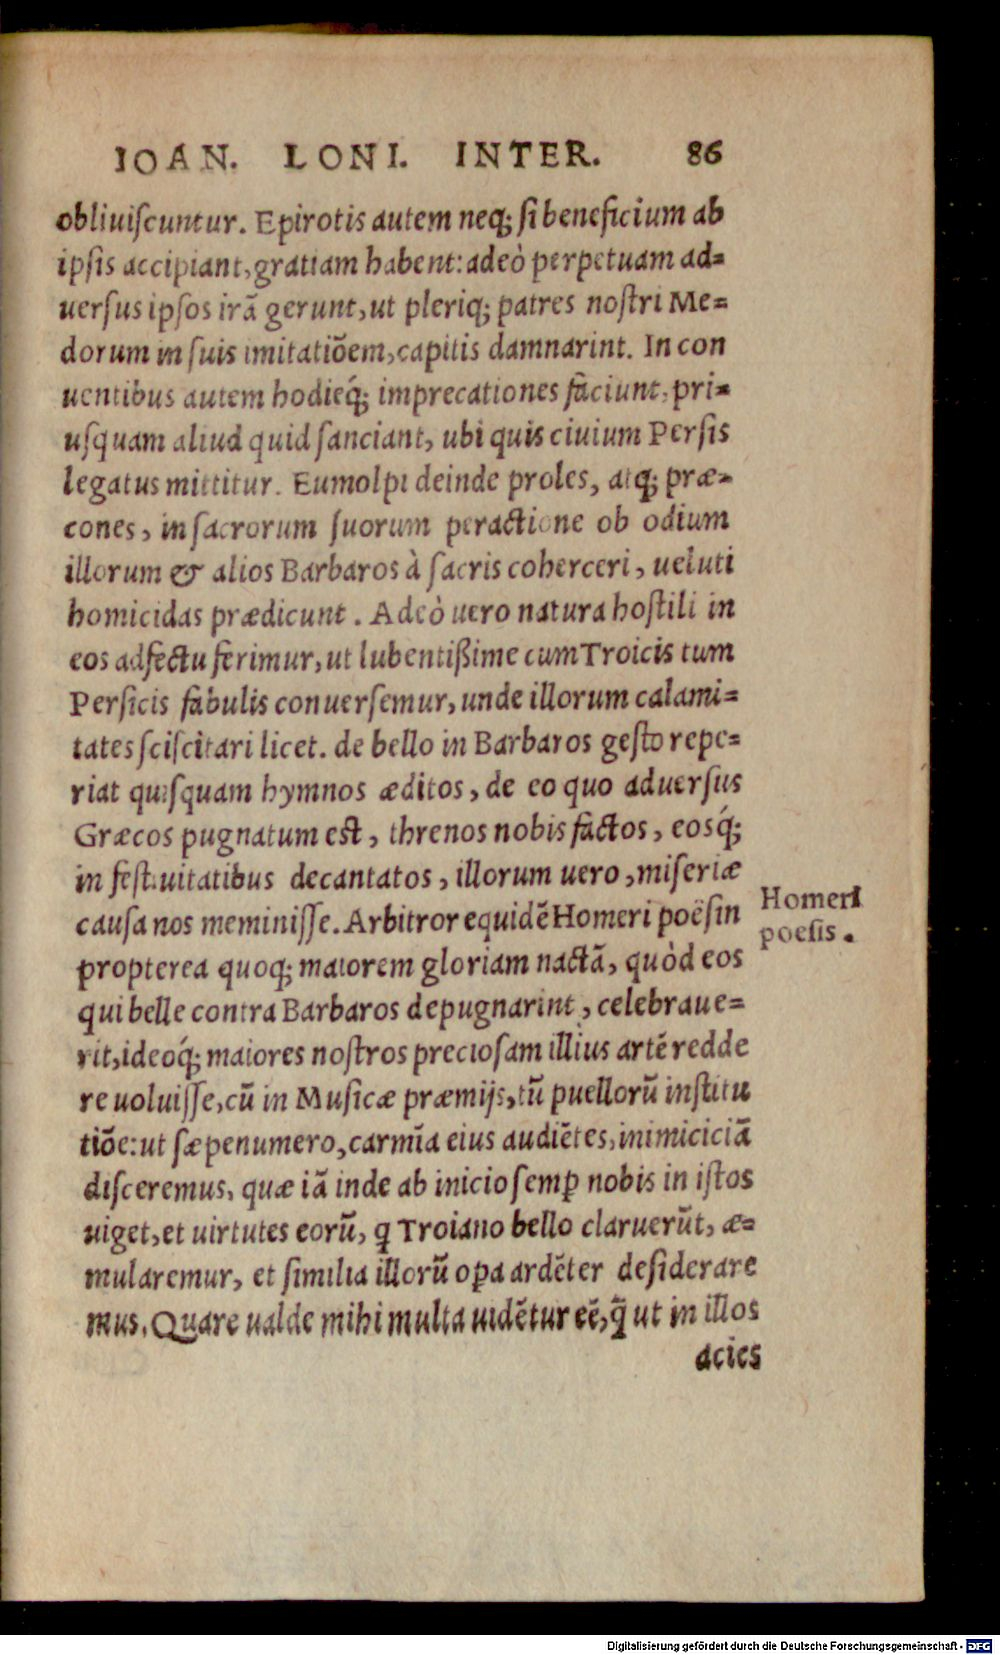 IOAN. LONI. INTER. 86
obliuiſcuntur. Epirotis autem neq; ſi beneficium ab
ipſis accipiant, gratiam habent: adeò perpetuam ad=
uerſus ipſos irã gerunt, ut pleriq; patres noſtri Me=
dorum in ſuis imitatiõem, capitis damnarint. In con
uentibus autem hodieq́; imprecationes faciunt, pri=
uſquam aliud quid ſanciant, ubi quis ciuium Perſis
legatus mittitur. Eumolpi deinde proles, atq; præ=
cones, in ſacrorum ſuorum peractione ob odium
illorum & alios Barbaros à ſacris coherceri, ueluti
homicidas prædicunt. Adeò uero natura hoſtili in
eos adfectu ferimur, ut lubentißime cum Troicis tum
Perſicis fabulis conuerſemur, unde illorum calami=
tates ſciſcitari licet. de bello in Barbaros geſto repe=
riat quiſquam hymnos æditos, de eo quo aduerſus
Græcos pugnatum est, threnos nobis factos, eosq́;
in feſtiuitatibus decantatos, illorum uero, miſeriæ
cauſa nos meminiſſe. Arbitror equidẽ Homeri poëſin
Homeri
poeſis.
propterea quoq; maiorem gloriam nactã, quòd eos
qui belle contra Barbaros depugnarint, celebraue=
rit, ideoq́; maiores noſtros precioſam illius artẽ redde
re uoluiſſe, cũ in Muſicæ præmijs, tũ puellorũ inſtitu
tiõe: ut ſæpenumero, carmĩa eius audiẽtes, inimiciciã
diſceremus, quæ iã inde ab inicio ſemꝑ nobis in iſtos
uiget, et uirtutes eorũ, q̃ Troiano bello claruerũt, æ=
mularemur, et ſimilia illorũ oꝑa ardẽter deſiderare
mus. Quare ualde mihi multa uidẽtur eẽ, q̃ ut in illos
acies
Digitalisierung gefördert durch die Deutsche Forschungsgemeinschaft - DFG